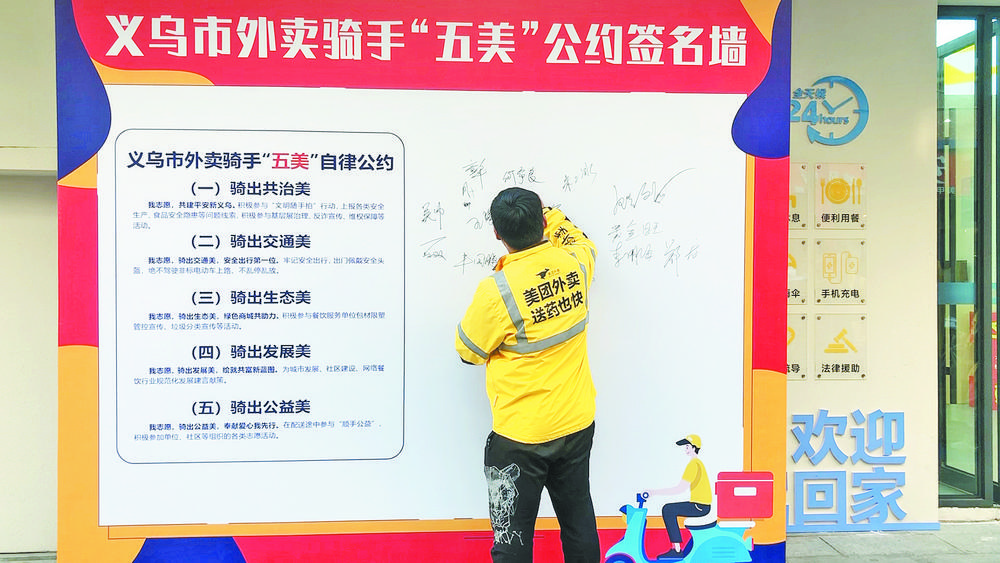 义乌市外卖骑手“五美”公约签名墙
义乌市外卖骑手“五美”自律公约
（一）骑出共治美
我志愿，共建平安新义乌。积极参与“文明随手拍”行动，上报各类安全
生产、食品安全隐患等问题线索，积极参与基层治理、反诈宣传、维权保障等
活动。
（二）骑出交通美
我志愿，骑出交通美，安全出行第一位。牢记安全出行，出门佩戴安全头
盔，绝不驾驶非标电动车上路，不乱停乱放。
（三）骑出生态美
我志愿，骑出生态美，绿色商城共助力。积极参与餐饮服务单位包材限塑
管控宣传、垃圾分类宣传等活动。
（四）骑出发展美
我志愿，骑出发展美，绘就共富新蓝图。为城市发展、社区建设、网络餐
饮行业规范化发展建言献策。
（五）骑出公益美
我志愿，骑出公益美，奉献爱心我先行。在配送途中参与“顺手公益”，
积极参加单位、社区等组织的各类志愿活动。
美团外卖
送药也快
全天候
24hours
息
便利用餐
伞
手机充电
导
法律援助
欢迎
回家